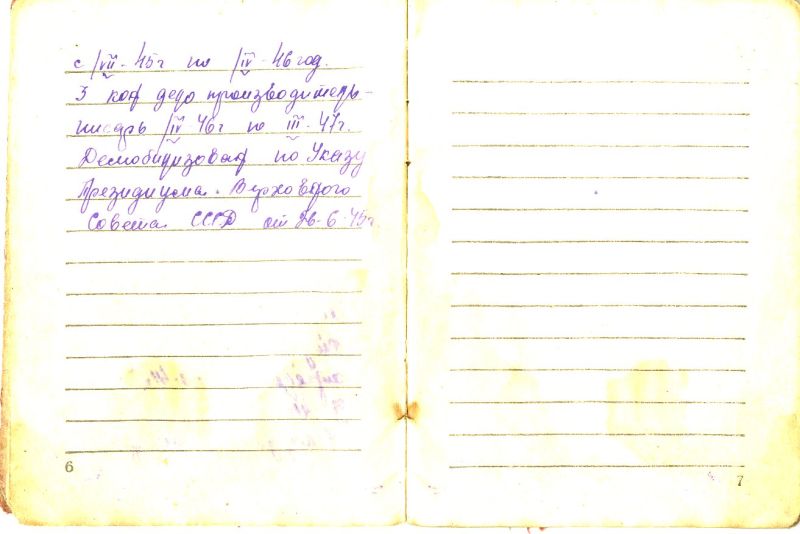 с /VII - 45г по /IV - 46 год.
З кот дело производитель-
писарь /IV 46г по III - 47г.
Демобилизован по Указу
Президиума Верховного
Совета СССР от 26-6-45г.
6
7